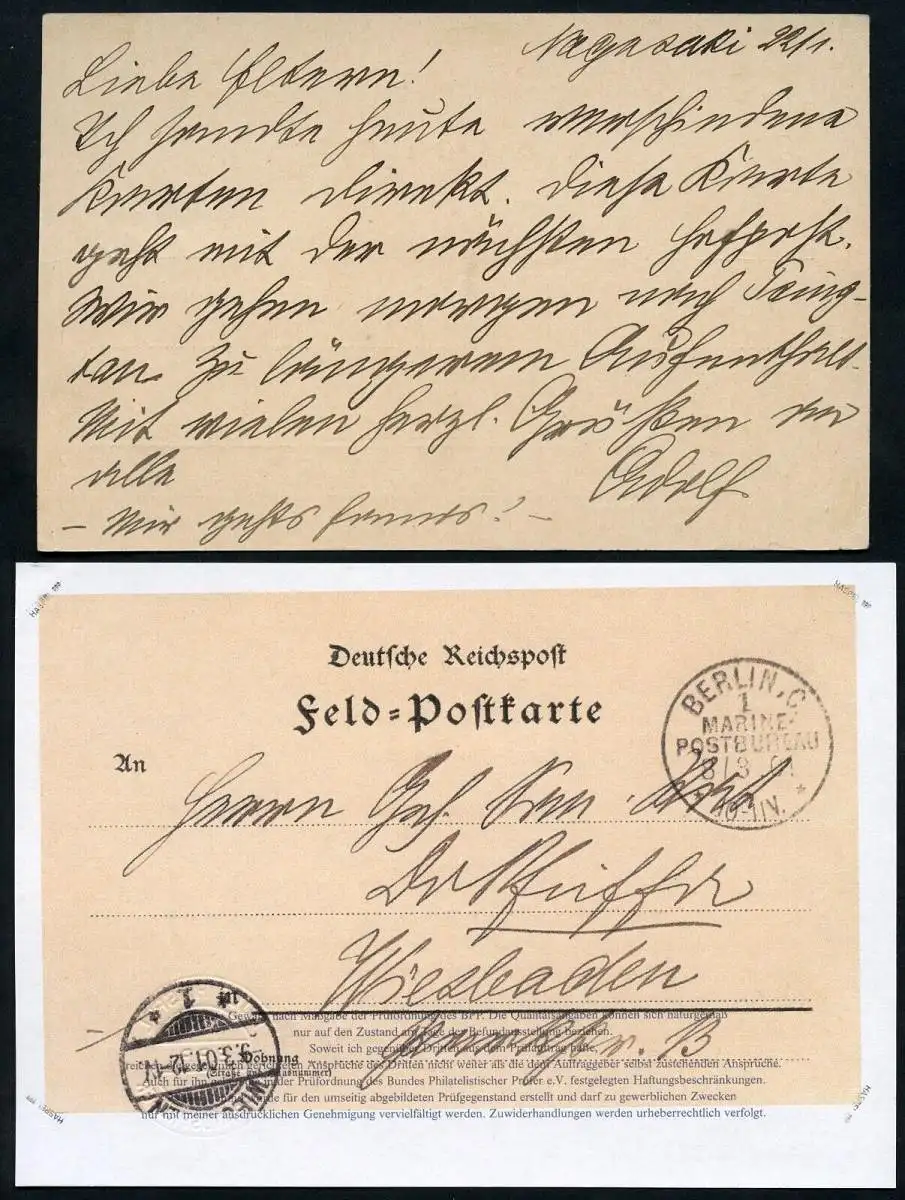 Nagasaki 22/1.
Liebe Eltern!
Ich sandte heute verschiedene
Karten direkt. Diese Karte
geht mit der nächsten Hofpost.
Wir gehen morgen nach Tsing-
tau zu längerem Aufenthalt.
Mit vielen herzl. Grüßen an
alle Adolf
– Mir gehts famos! –
Deutsche Reichspost
Feld=Postkarte
BERLIN, C.
1
MARINE-
POSTBUREAU
An
Herrn Geh. San. Rath
Dr Pfeiffer
Wiesbaden
nach Maßgabe der Prüfordnung des BPP. Die Qualitätsangaben können sich naturgemäß
nur auf den Zustand am Tage der Befundausstellung beziehen.
Soweit ich gegenüber Dritten aus dem Prüfauftrag hafte,
Wohnung
Ansprüche des Dritten nicht weiter als die dem Auftraggeber selbst zustehenden Ansprüche.
(Straße und Hausnummer)
Auch für ihn in der Prüfordnung des Bundes Philatelistischer Prüfer e.V. festgelegten Haftungsbeschränkungen.
wurde für den umseitig abgebildeten Prüfgegenstand erstellt und darf zu gewerblichen Zwecken
nur mit meiner ausdrücklichen Genehmigung vervielfältigt werden. Zuwiderhandlungen werden urheberrechtlich verfolgt.